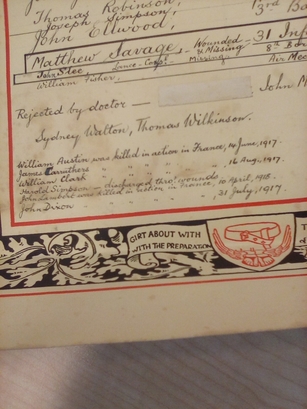 Thomas Robinson,
Joseph Simpson,
John Ellwood, 3rd
Matthew Savage, Wounded & Missing 31 Inf
John Slee Lance-Corpl Missing. 8th
William Fisher.
Rejected by doctor — John
Sydney Walton, Thomas Wilkinson.
William Austin was killed in action in France, 14 June, 1917.
James Carruthers " " " " 16 Aug. 1917.
William Clark
Harold Simpson — discharged thro' wounds
John Lambert was killed in action in France, 10 April, 1918.
John Dixon " " " 31 July, 1917.
GIRT ABOUT WITH
WITH THE PREPARATION